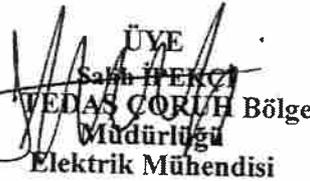 ÜYE
Salih İPEKÇİ
TEDAŞ ÇORUH Bölge
Müdürlüğü
Elektrik Mühendisi